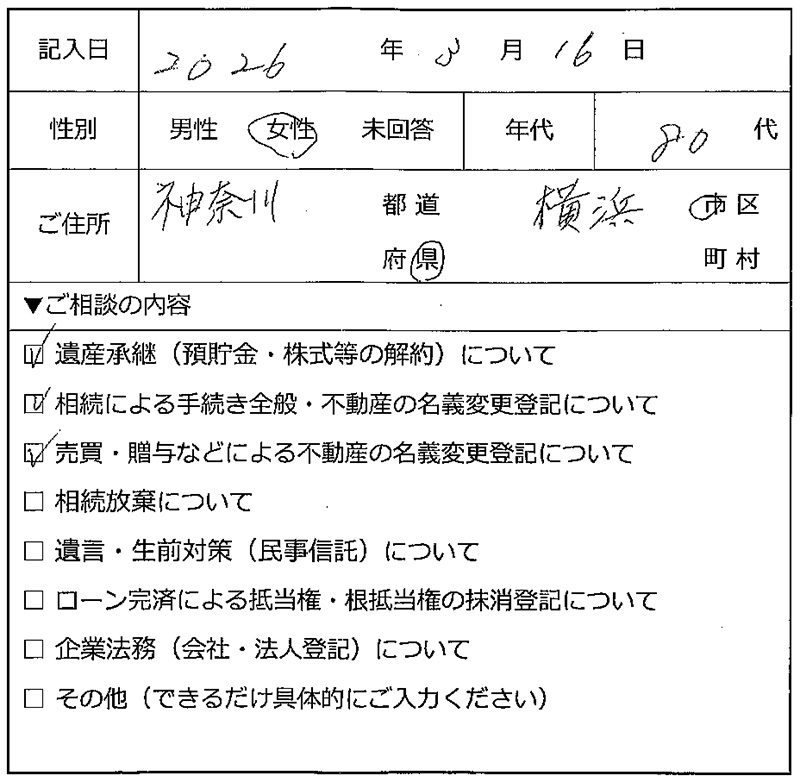 記入日 2026 年 3 月 16 日
性別 男性 女性 未回答 年代 80 代
ご住所 神奈川 都道 横浜 市区
府県 町村
▼ご相談の内容
☑ 遺産承継（預貯金・株式等の解約）について
☑ 相続による手続き全般・不動産の名義変更登記について
☑ 売買・贈与などによる不動産の名義変更登記について
□ 相続放棄について
□ 遺言・生前対策（民事信託）について
□ ローン完済による抵当権・根抵当権の抹消登記について
□ 企業法務（会社・法人登記）について
□ その他（できるだけ具体的にご入力ください）